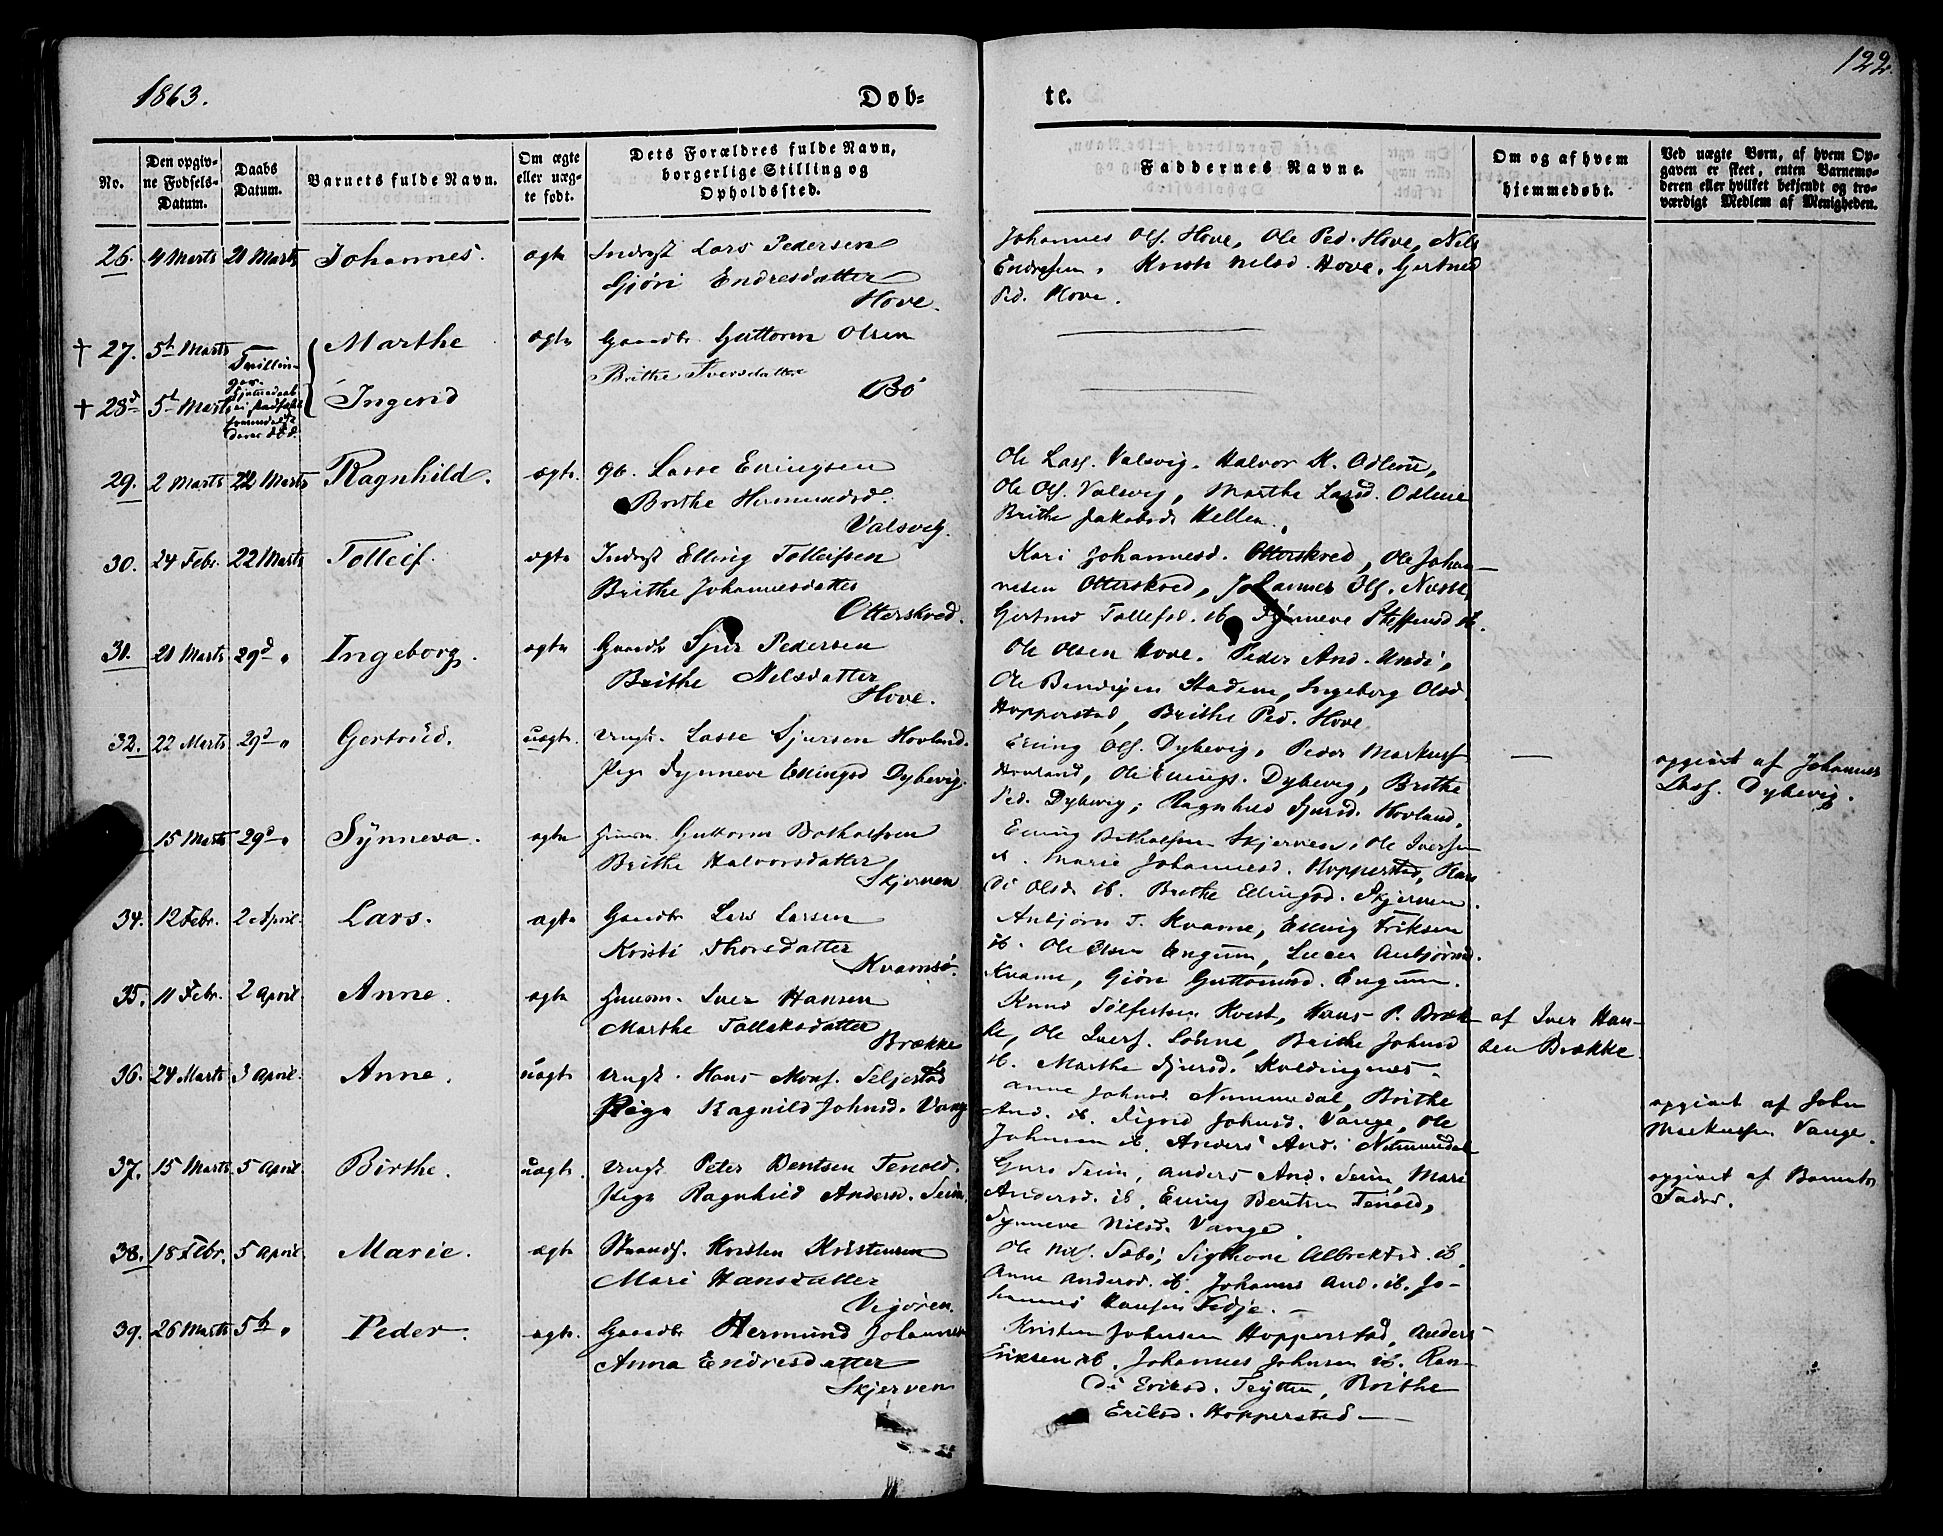 1863.
Døb-
te.
122.
No.
Den opgiv-
ne Fødsels-
Datum.
Daabs
Datum.
Barnets fulde Navn.
Om ægte
eller uæg-
te født.
Dets Forældres fulde Navn,
borgerlige Stilling og
Opholdssted.
Faddernes Navne.
Om og af hvem
hjemmedøbt.
Ved uægte Børn, af hvem Op-
gaven er skeet, enten Barnemo-
deren eller hvilket bekjendt og tro-
værdigt Medlem af Menigheden.
26. 4 Marts 21 Marts Johannes. ægte Inderst Lars Pedersen
Gjøri Endresdatter
Hove.
Johannes Ols. Hove, Ole Ped. Hove, Nils
Endresen, Nilsd. Hove, Gertrud
Ped. Hove.
† 27. 5t Marts Marthe ægte Gaardbr. Guttorm Olsen
Tvillin-
ger.
Brithe Iversdatter
Bø
† 28d 5t Marts Ingerid
29. 2 Marts 22 Marts Ragnhild. ægte. gb. Lasse Ellingsen
Brithe Hermundsd.
Valsvig.
Ole Lass. Valsvig, Halvor K. Odlem,
Ole Ols. Valsvig, Marthe Larsd. Odlem
Brithe Jakobsd. Hellen.
30. 24 Febr. 22 Marts Tolleif. ægte Inderst Elling Tolleifsen
Brithe Johannesdatter
Otterskred.
Kari Johannesd. Otterskred, Ole Johan-
nesen Otterskred, Johannes Ols. Nesse,
Gertrud Tollefsd. ib. Synneve Steffensd. ib.
31. 21 Marts 29d " Ingeborg. ægte Gaardb Sjur Pedersen
Brithe Nilsdatter
Hove.
Ole Olsen Hove. Peder And. Undi,
Ole Bendixen Stadem, Ingeborg Olsd.
Hopperstad, Brithe Ped. Hove
32. 22 Marts 29d " Gertrud. uægte. Ungk. Lasse Sjursen Hovland.
Pige Synneve Ellingsd Dybevig.
Elling Ols. Dybevig, Peder Markuss
Hovland, Ole Ellings. Dybevig, Brithe
Ped. Dybevig, Ragnhild Sjursd. Hovland.
—
opgivet af Johannes
Lass. Dybevig.
15 Marts 29d " Synneva. ægte Huusm. Guttorm Botholfsen
Brithe Halvorsdatter
Skjerven
Elling Botholfsen Skjerven, Ole Iversen
ib. Marie Johannesd. Hopperstad, Ran-
di Olsd. ib. Brithe Ellingsd. Skjerven.
34. 12 Febr. 2 April. Lars. ægte Gaardbr Lars Larsen
Kristi Thorsdatter
Kvamsø.
Anbjørn T. Kvame, Elling Eriksen
ib. Ole Olsen Engum, Anbjørnsd.
Kvame, Gjøri Guttormsd. Engum.
35. 11 Febr. 2 April Anne. ægte Huusm. Iver Hansen
Marthe Tollaksdatter
Brække
Knud Kvist, Hans P. Bræk-
ke, Ole Ivers. Lønne, Brithe Johnsd
ib. Marthe Sjursd. Koldingnæs
af Iver Han-
sen Brække.
36. 24 Marts 3 April. Anne. uægte Ungk. Hans Mons. Seljestad
Pige Ragnild Johnsd. Vange
Anne Johnsd. Nummedal, Brithe
And. ib. Sigrid Johnsd. Vange, Ole
Johnsen ib. Anders And. Nummedal
opgivet af John
Markussen Vange.
37. 15 Marts. 5 April Birthe. uægte. Ungk. Peter Bentsen Tenold.
Pige Ragnhild Andersd. Seim
Guro Seim, Anders And. Seim, Mari
Andersd. ib, Elling Bentsen Tenold,
Synneve Nilsd. Vange.
opgivet af Barnets
Fader.
38. 18 Febr. 5 April Marie. ægte Strands. Kristen Kristensen
Mari Hansdatter
Vigøren.
Ole Nils. Sæbø, Sigthore Albrektsd. ib.
Anne Andersd. ib. Johannes And. ib. Jo-
hannes Hansen Fedje. —
39. 26 Marts 5t " Peder. ægte. Gaardbr Hermund Johannes
Anna Endresdatter
Skjerven
Kristen Johnsen Hopperstad, Anders
Eriksen ib. Johannes Johnsen ib. Ran-
di Eriksd. Feyten, Brithe
Eriksd. Hopperstad —